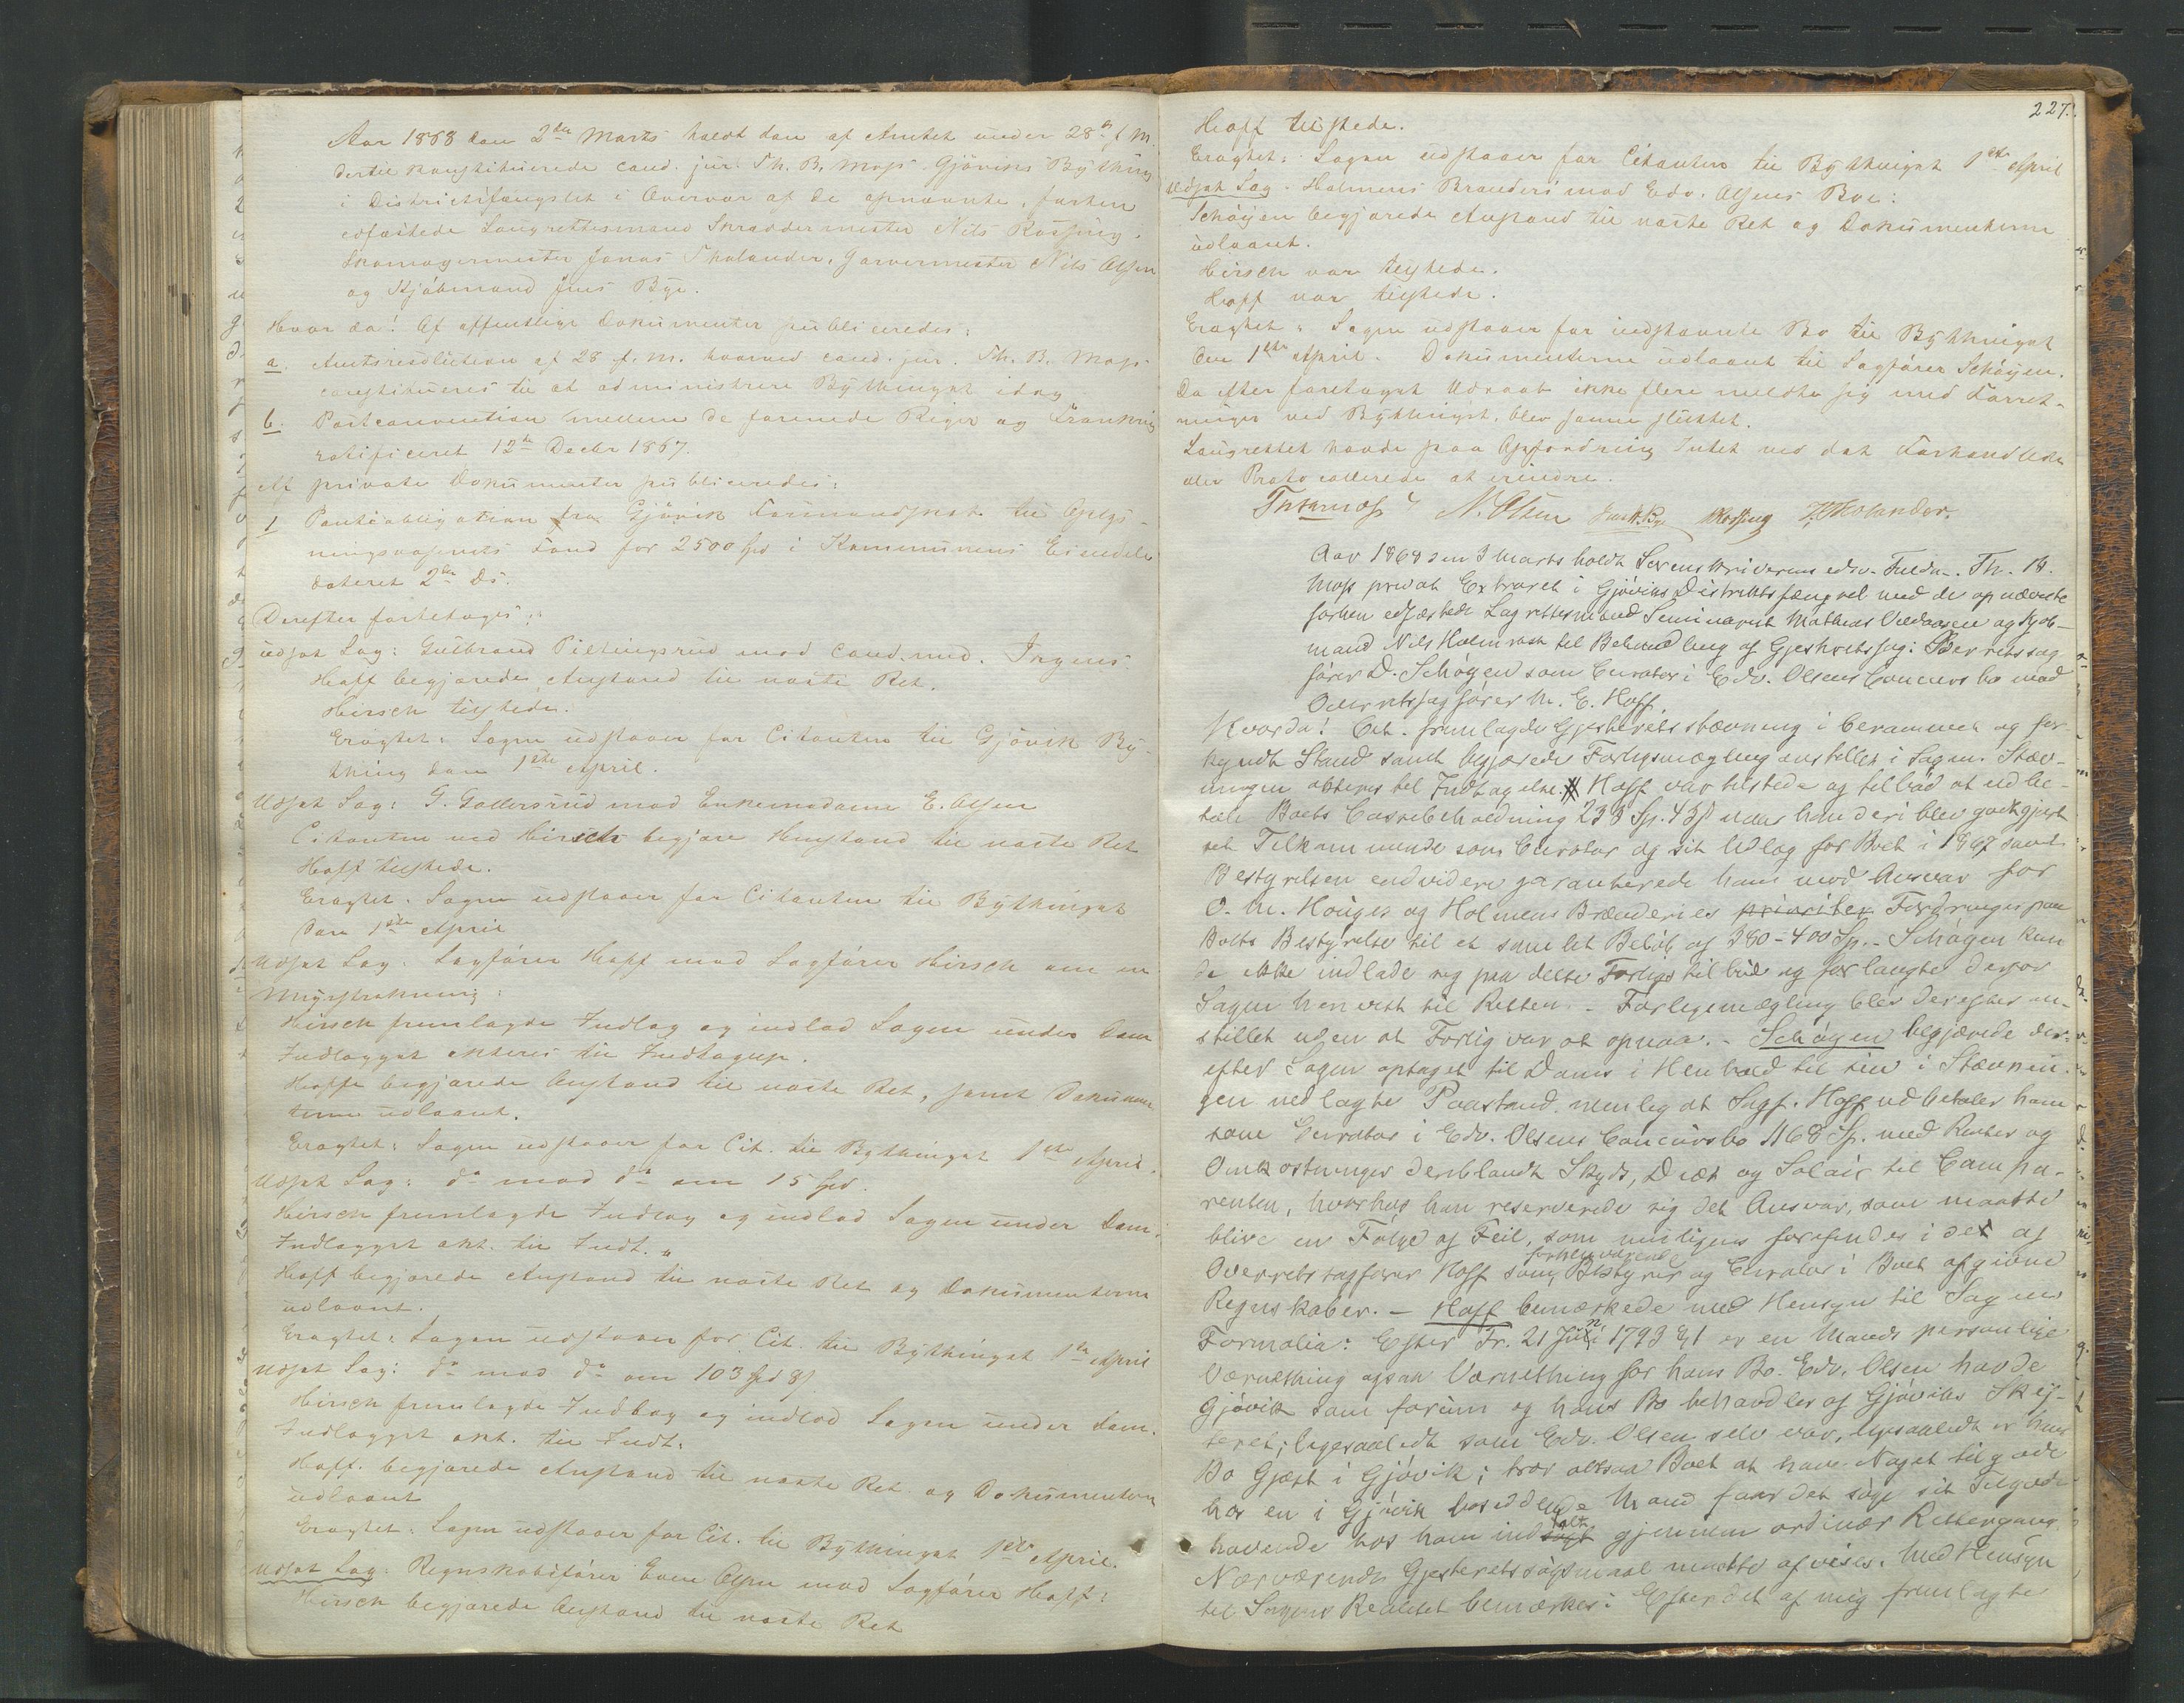 Aar 1868 den 2den Marts holdt den af Amtet under 28de f. M.
dertil konstituerede cand. jur. Th. B. Moss Gjøviks Bything
i Districtsfængslet i Overvær af de opnævnte, forhen
edfæstede Laugrettesmænd Skræddermester Nils Rossing,
Skomagermester Jonas Tholander, Garvermester Nils Olsen
og Kjøbmand Jens Bye.
Hvor da! Af offentlige Dokumenter publiceredes:
a. Amtsresolution af 28 f. M. hvorved cand. jur. Th. B. Moss
constitueres til at administrere Bythinget idag
b. Postconvention mellem de forenede Riger og Frankrig
ratificeret 12te Decbr 1867.
Af private Dokumenter publiceredes:
1 Panteobligation fra Gjøvik Formandskab til Oplys-
ningsvæsenets Fond for 2500 Spd i Kommunens Eiendele
dateret 2den Ds.
Derefter foretoges:
Udsat Sag: Gulbrand Pettingsrud mod Cand. med. Irgens.
Hoff begjærede Anstand til næste Ret.
Hirsch tilstede.
Eragtet: Sagen udstaaer for Citanten til Gjøvik By-
thing den 1ste April.
Udsat Sag: G. Gollersrud mod Enkemadame E. Olsen
Citanten ved Hirsch begjære Anstand til næste Ret
Hoff tilstede.
Eragtet. Sagen udstaaer for Citanten til Bythinget
den 1ste April
Udsat Sag. Sagfører Hoff mod Sagfører Hirsch om en
Hirsch fremlagde Indlæg og indlod Sagen under Dom
Indlægget akteres til Indtagelse.
Hoff begjærede Anstand til næste Ret, samt Dokumen-
terne udlaant.
Eragtet: Sagen udstaaer for Cit. til Bythinget 1ste April.
Udsat Sag: do mod do om 15 Spd.
Hirsch fremlagde Indlæg og indlod Sagen under Dom.
Indlægget akt. til Indt.
Hoff begjærede Anstand til næste Ret og Dokumenterne
udlaant.
Eragtet: Sagen udstaaer for Cit. til Bythinget 1ste April
Udsat Sag: do mod do om 103 Spd 8 s
Hirsch fremlagde Indlæg og indlod Sagen under Dom.
Indlægget akt. til Indt.
Hoff. begjærede Anstand til næste Ret og Dokumenterne
udlaant
Eragtet. Sagen udstaaer for Cit. til Bythinget 1ste April.
Udsat Sag. Regnskabsfører Even Olsen mod Sagfører Hoff:
Hirsch begjærede Anstand til næste Ret
227.
Hoff tilstede.
Eragtet: Sagen udstaaer for Citanten til Bythinget 1ste April
Udsat Sag. Holmens Brænderi mod Edv. Olsens Boe:
Schøyen begjærede Anstand til næste Ret og Dokumenterne
udlaant.
Hirsch var tilstede.
Hoff var tilstede.
Eragtet: Sagen udstaaer for indstævnte Bo til Bythinget
den 1ste April. Dokumenterne udlaant til Sagfører Schøyen.
Da efter foretaget Udraab ikke flere meldte sig med Forret-
ninger ved Bythinget, blev samme sluttet.
Laugrettet havde paa Opfordring Intet ved det Forhandlede
eller Protocollerede at erindre.
Th. B. Moss N. Olsen Jens H. Bye N Rossing J. Tholander.
Aar 1868 den 3 Marts holdt Sorenskriverens edsv. Fuldm. Th. B.
Moss privat Extraret i Gjøviks Distriktsfængsel med de opnævnte
forhen edfæstede Lagrettesmænd Seminarist Mathias Oudensen og Kjøb-
mand Nils Holmsen til Behandling af Gjesteretssag: Overretssag
fører D. Schøyen som Curator i Edv. Olsens Concursbo mod
Overretssagfører M. E. Hoff.
Hvorda! Cit. fremlagde Gjesteretsstævning i berammet og for-
kyndt Stand samt begjærede Forligsmægling anstillet i Sagen. Stæv-
ningen akteres til Indtagelse. Hoff var tilstede og tilbød at udbe-
tale Boets Cassebeholdning 233 Sp. 43 s naar han deri blev godtgjort
sit Tilkommende som Curator og sit Udlæg for Boet i 1867 samt
Bestyrelsen endvidere garanterede ham mod Ansvar for
O. M. Houges og Holmens Brænderies prioriter Fordringer paa
Boets Bestyrelse til et samlet Beløb af 380-400 Sp. - Schøyen kun
de ikke indlade sig paa dette Forligs tilbud og forlangte derfor
Sagen henvist til Retten. - Forligsmægling blev derefter an-
stillet uden at Forlig var at opnaa. - Schøyen begjærede der-
efter Sagen optaget til Doms i Henhold til sin i Stævnin-
gen nedlagte Paastand. nemlig at Sagf. Hoff udbetaler ham
som Curator i Edv. Olsens Concursbo 1168 Sp. med Renter og
Omkostninger deriblandt Skyds, Diæt og Salair til Compa-
renten, hvorhos han reserverede sig det Ansvar, som maatte
blive en Følge af Feil, som muligens forefindes i det af
Overretssagfører Hoff som forhenværende Bestyrer og Curator i Boet afgivne
Regnskaber. - Hoff bemærkede med Hensyn til Sagens
Formalia: Efter Fr. 21 Juni 1793 § 1 er en Mands personlige
Værnething ogsaa Værnething for hans Bo. Edv. Olsen havde
Gjøvik som forum og hans Bo behandles af Gjøviks Skif-
teret; ligesaalidt som Edv. Olsen selv var, ligesaalidt er hans
Bo Gjæst i Gjøvik; tror altsaa Boet at have Noget tilgode
hos en i Gjøvik bosiddende Mand faar det søge sit Tilgode-
havende hos ham indtalt gjennem ordinær Rettergang.
Nærværende Gjesteretssøgsmaal maatte afvises. Med Hensyn
til Sagens Realitet bemærkes: Efter det af mig fremlagte